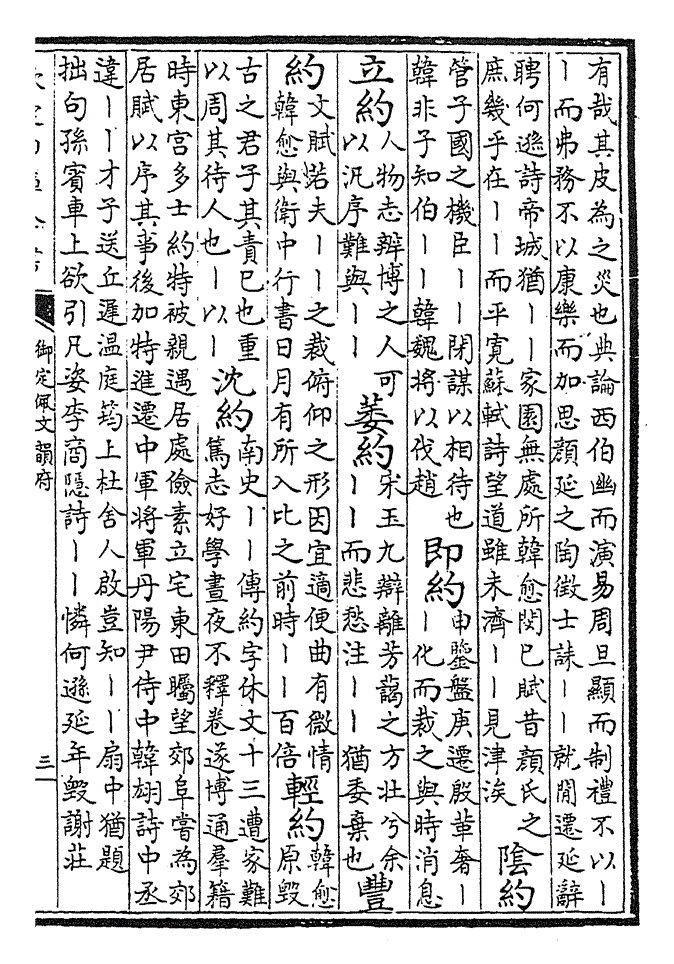 有哉其皮為之災也典論西伯幽而演易周旦顯而制禮不以ー
ー而弗務不以康樂而加思顔延之陶徵士誄ーー就閒遷延辭
聘何遜詩帝城猶ーー家園無處所韓愈閔已賦昔顔氏之
庶幾乎在ーー而平寛蘇軾詩望道雖未濟ーー見津涘
陰約
管子國之機臣ーー閉謀以相待也
韓非子知伯ーー韓魏將以伐趙
即約
申鑒盤庚遷殷革奢ー
ー化而裁之與時消息
立約
人物志辨博之人可
以汎序難與ーー
萎約
宋玉九辯離芳藹之方壯兮余
ーー而悲愁注ーー猶委棄也
豐
約
文賦若夫ーー之裁俯仰之形因宜適便曲有微情
韓愈與衛中行書日月有所入比之前時ーー百倍
輕約
韓愈
原毀
古之君子其責已也重
以周其待人也ー以ー
沈約
南史ーー傳約字休文十三遭家難
篤志好學晝夜不釋卷遂博通羣籍
時東宫多士約特被親遇居處儉素立宅東田矚望郊阜嘗為郊
居賦以序其事後加特進遷中軍將軍丹陽尹侍中韓翃詩中丞
違ーー才子送丘遲温庭筠上杜舍人啟豈知ーー扇中猶題
拙句孫賓車上欲引凡姿李商隱詩ーー憐何遜延年毀謝莊
御定佩文韻府
三